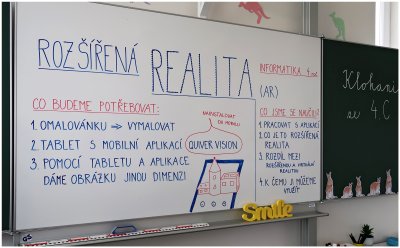 ROZŠÍŘENÁ REALITA
INFORMATIKA
(AR)
CO BUDEME POTŘEBOVAT:
1. OMALOVÁNKU ⇒ VYMALOVAT
2. TABLET S MOBILNÍ APLIKACÍ QUIVER VISION
3. POMOCÍ TABLETU A APLIKACE
DÁME OBRÁZKU JINOU DIMENZI
NAINSTALOVAT
DO MOBILU
CO JSME SE NAUČILI?
1. PRACOVAT S APLIKACÍ
2. CO JE TO ROZŠÍŘENÁ
REALITA
3. ROZDÍL MEZI
ROZŠÍŘENOU A VIRTUÁLNÍ
REALITOU
4. K ČEMU JI MŮŽEME
VYUŽÍT
Klokani
se 4.C
Smile